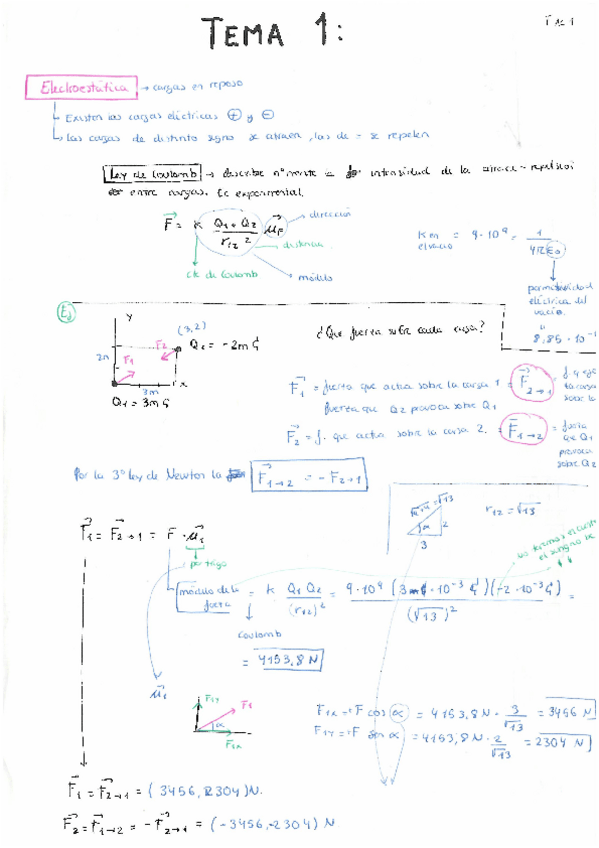 TEMA 1:
Electroestática → cargas en reposo
Existen las cargas eléctricas ⊕ y ⊖
las cargas de distinto signo se atraen, las de = se repelen
Ley de Coulomb → describe la intensidad de la
entre cargas. Es experimental.
F = k Q1 · Q2 / r12² μF
dirección
distancia
cte de Coulomb
módulo
K en el vacío = 9·10⁹ = 1 / 4πε0
permitividad eléctrica del vacío
8,85·10⁻
Ej
y
(3,2)
2m
F1
F2
Q2 = -2mC
x
3m
Q1 = 3mC
¿Que fuerza sobre cada carga?
F1 = fuerza que actua sobre la carga 1 = F2→1 =
fuerza que Q2 provoca sobre Q1
F2 = f. que actua sobre la carga 2. = F1→2 = fuerza que Q1 provoca sobre Q2
Por la 3ª ley de Newton la F1→2 = - F2→1
√13
α
2
3
r12 = √13
F1 = F2→1 = F · μ1
por trigo
no
el signo
módulo de la fuerza = k Q1 Q2 / (r12)² = 9·10⁹ (3·10⁻³ C)(-2·10⁻³ C) / (√13)² =
Coulomb
= 4153,8 N
μ1
F1y
F1
α
F1x
F1x = F cos α = 4153,8 N · 3/√13 = 3456 N
F1y = F sin α = 4153,8 N · 2/√13 = 2304 N
F1 = F2→1 = (3456, 2304) N.
F2 = F1→2 = -F2→1 = (-3456, -2304) N.